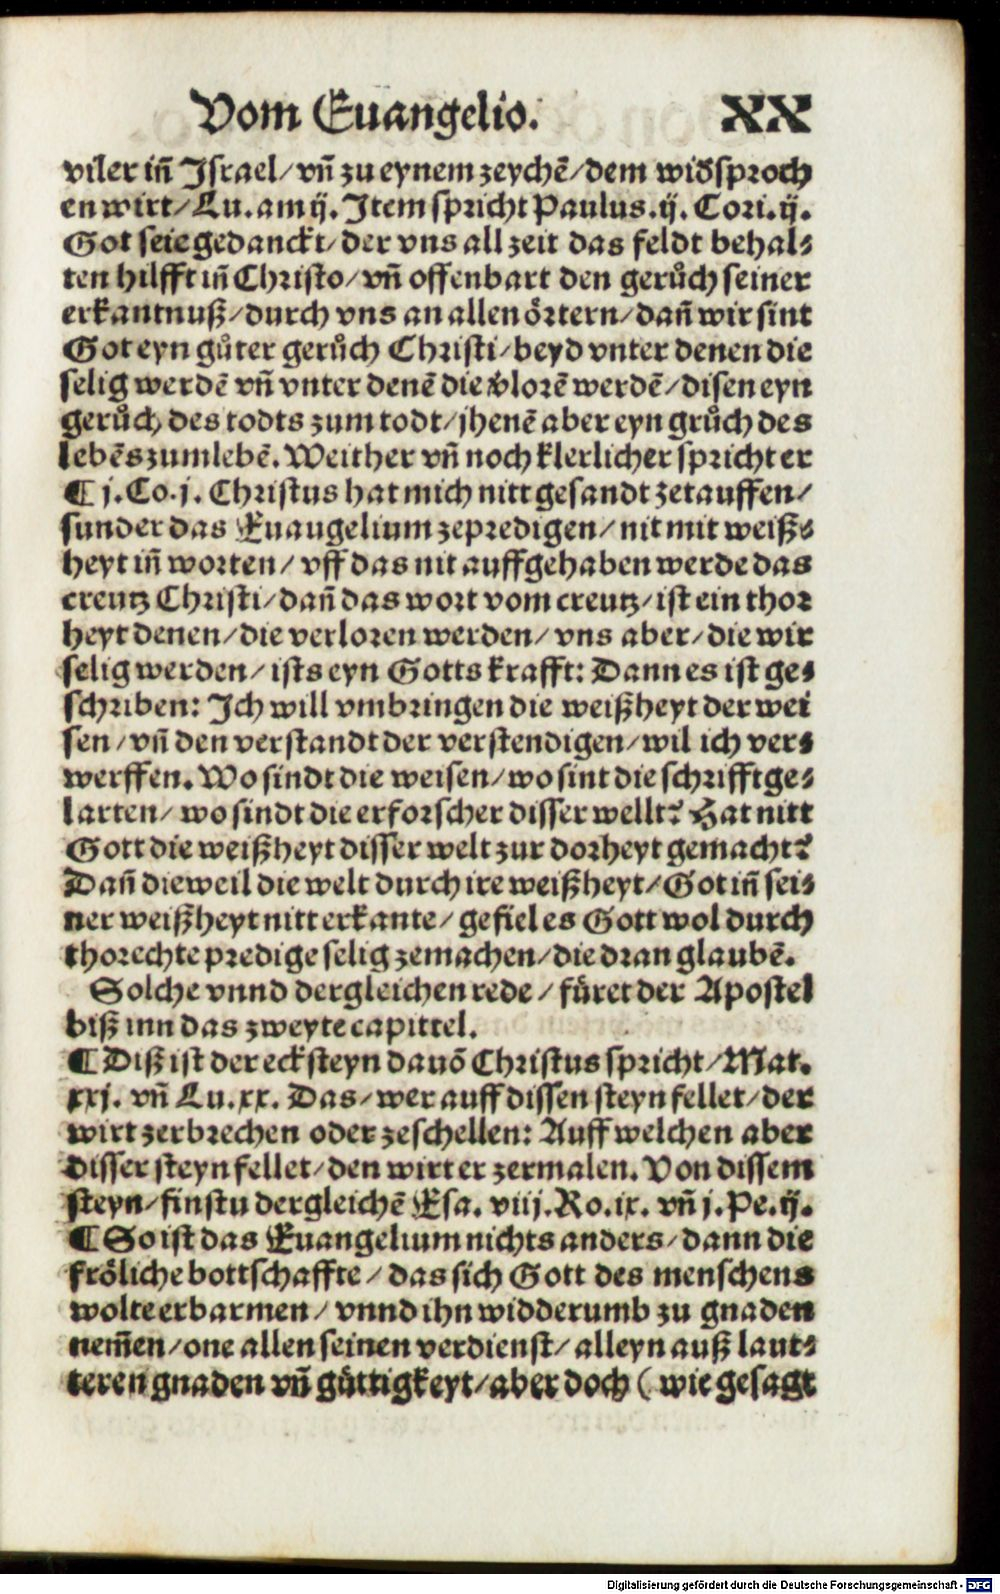 Vom Euangelio. XX
viler iñ Israel/ vñ zu eynem zeychẽ/ dem widsproch
en wirt/ Lu. am ij. Item spricht Paulus. ij. Cori. ij.
Got seie gedanckt/ der vns all zeit das feldt behal⸗
ten hilfft iñ Christo/ vñ offenbart den gerůch seiner
erkantnuß/ durch vns an allen örtern/ dañ wir sint
Got eyn gůter gerůch Christi/ beyd vnter denen die
selig werdẽ vñ vnter denẽ die v̾lorẽ werdẽ/ disen eyn
gerůch des todts zum todt/ jhenẽ aber eyn grůch des
lebẽs zum lebẽ. Weither vñ noch klerlicher spricht er
¶ j. Co. j. Christus hat mich nitt gesandt ze tauffen/
sunder das Euaugelium ze predigen/ nit mit weiß⸗
heyt iñ worten/ vff das nit auffgehaben werde das
creutz Christi/ dañ das wort vom creutz/ ist ein thor
heyt denen/ die verloren werden/ vns aber/ die wir
selig werden/ ists eyn Gotts krafft: Dann es ist ge⸗
schriben: Ich will vmbringen die weißheyt der wei
sen/ vñ den verstandt der verstendigen/ wil ich ver⸗
werffen. Wo sindt die weisen/ wo sint die schrifftge⸗
larten/ wo sindt die erforscher disser wellt? Hat nitt
Gott die weißheyt disser welt zur dorheyt gemacht?
Dañ dieweil die welt durch ire weißheyt/ Got iñ sei⸗
ner weißheyt nitt erkante/ gefiel es Gott wol durch
thorechte predige selig zemachen/ die dran glaubẽ.
Solche vnnd dergleichen rede/ füret der Apostel
biß inn das zweyte capittel.
¶ Diß ist der ecksteyn dauõ Christus spricht/ Mat.
xxj. vñ Lu. xx. Das/ wer auff dissen steyn fellet/ der
wirt zerbrechen oder zeschellen: Auff welchen aber
disser steyn fellet/ den wirt er zermalen. Von dissem
steyn/ finstu dergleichẽ Esa. viij. Ro. ix. vñ j. Pe. ij.
¶ So ist das Euangelium nichts anders/ dann die
fröliche bottschaffte/ das sich Gott des menschens
wolte erbarmen/ vnnd ihn widderumb zu gnaden
nem̃en/ one allen seinen verdienst/ alleyn auß laut⸗
teren gnaden vñ güttigkeyt/ aber doch ( wie gesagt
Digitalisierung gefördert durch die Deutsche Forschungsgemeinschaft - DFG